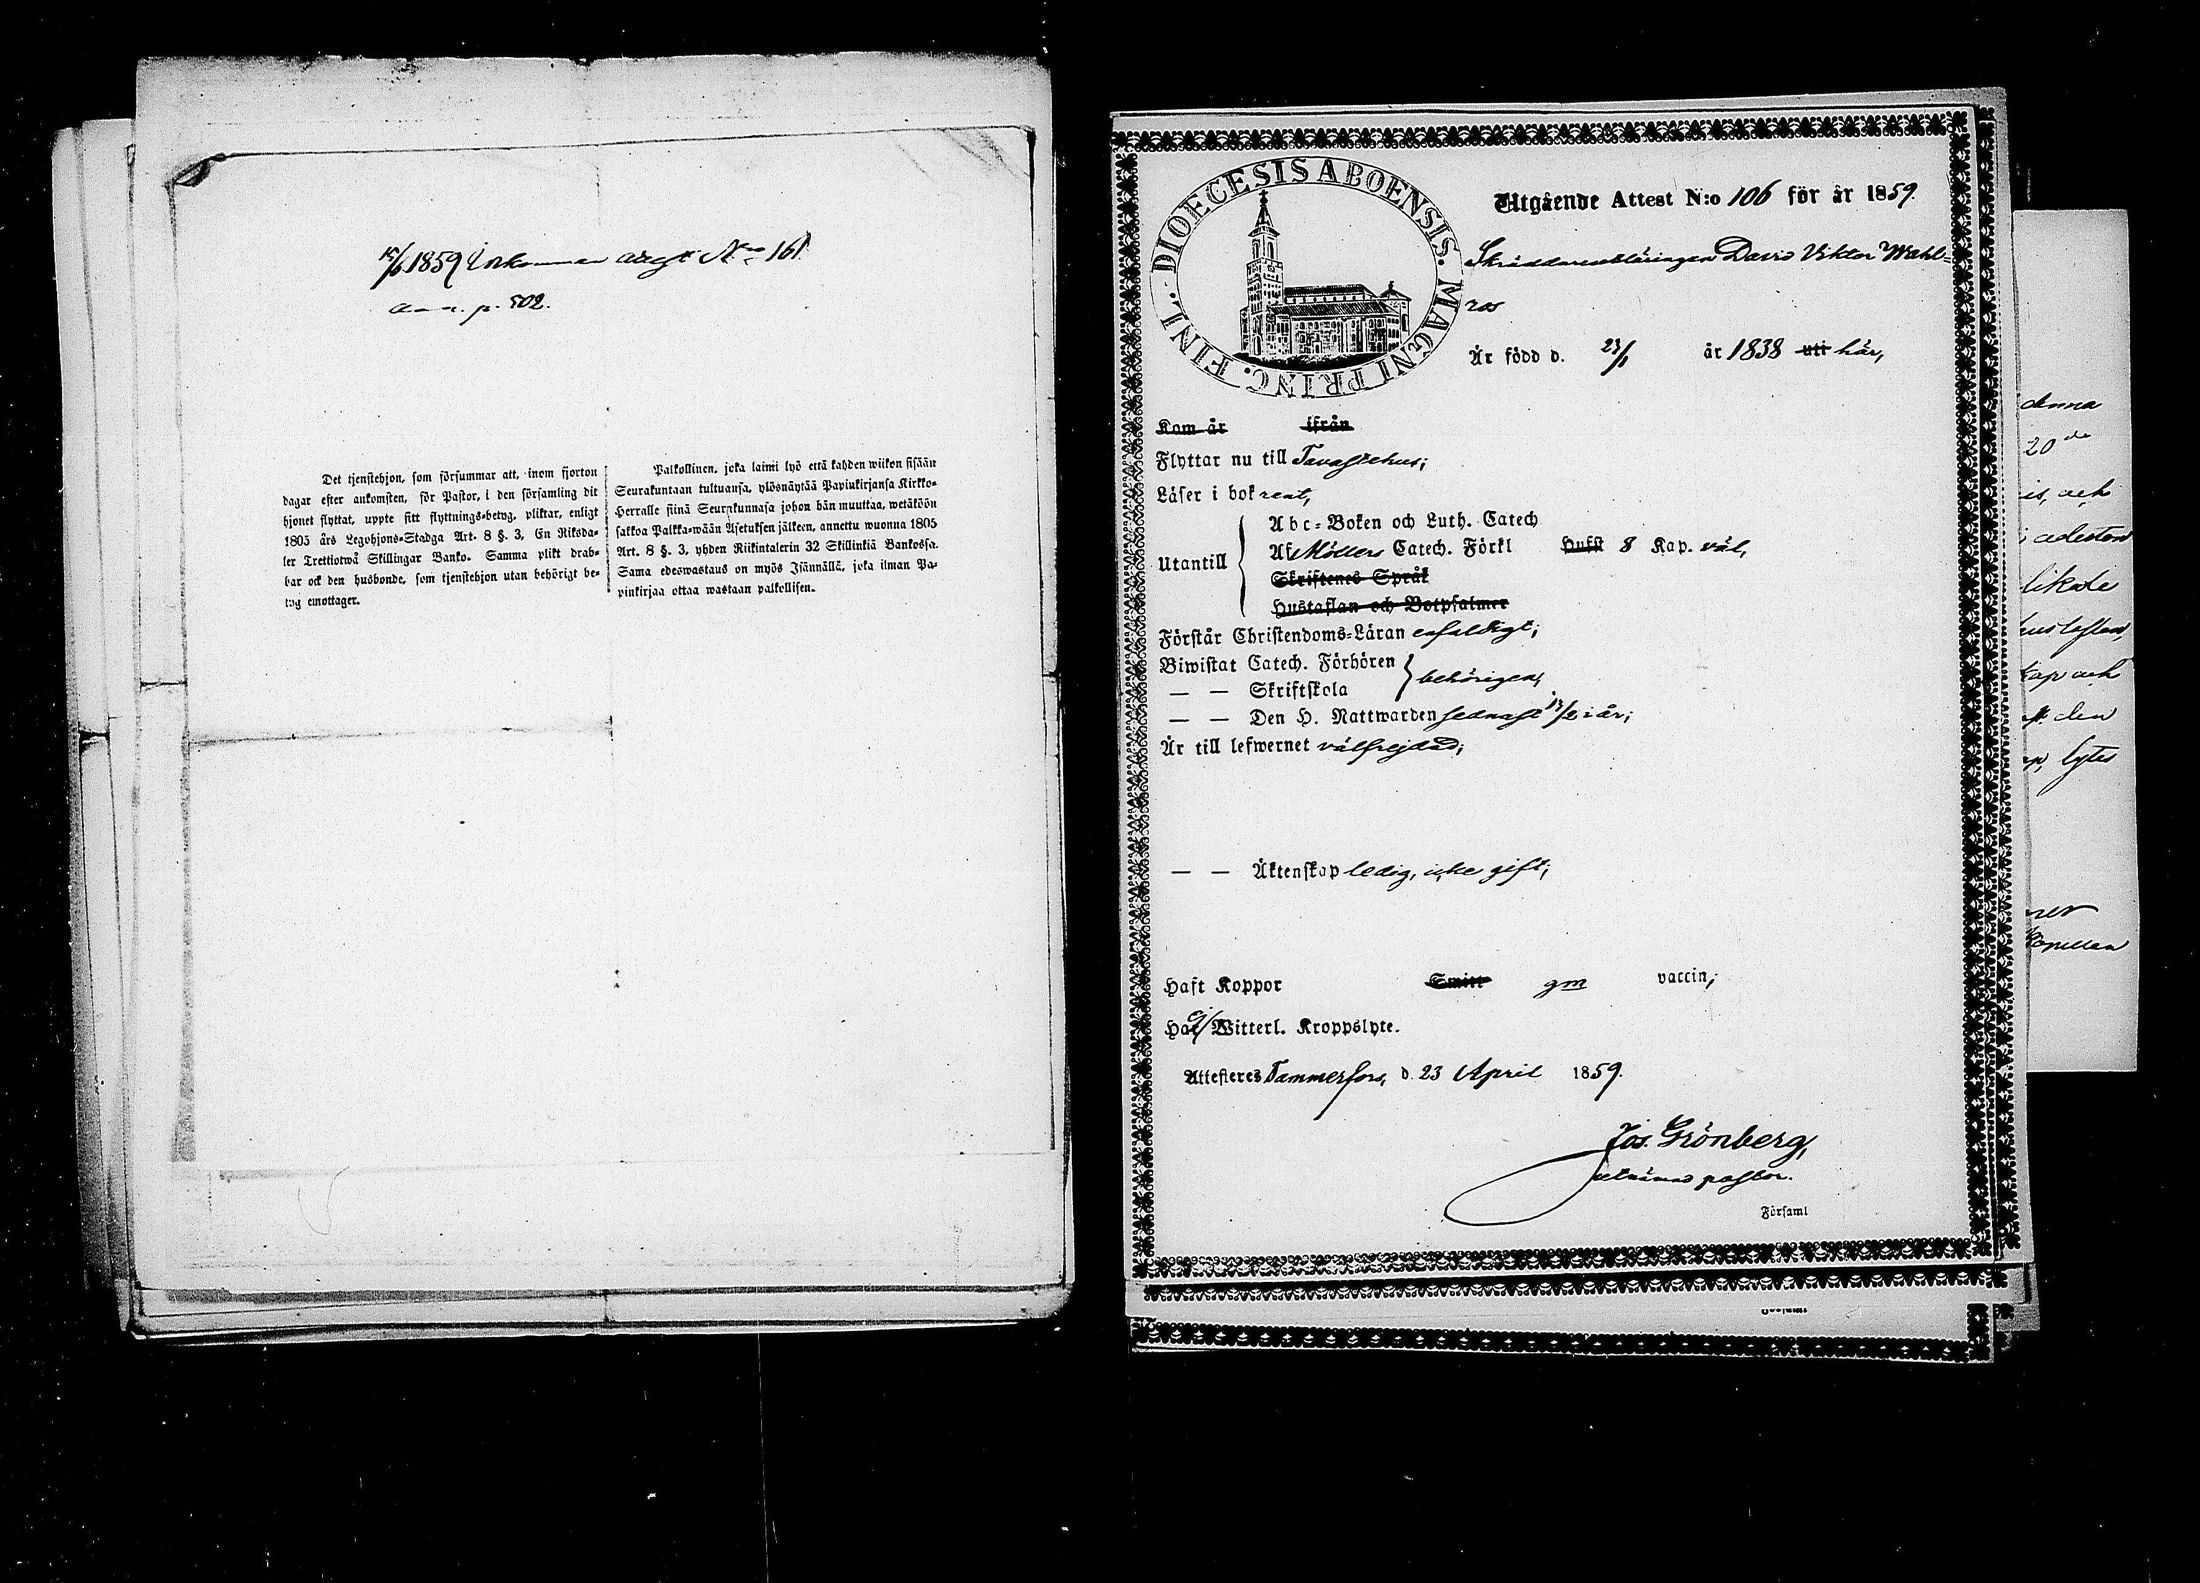 1859 Inkommen attest N:o 161
p. 502.
Det tjenstehjon, som försummar att, inom fjorton
dagar efter ankomsten, för Pastor, i den församling dit
hjonet flyttat, uppte sitt flyttnings-betyg, pliktar, enligt
1805 års Legohjons-Stadga Art. 8 §. 3, En Riksda-
ler Trettiotwå Skillingar Banko. Samma plikt drab-
bar ock den husbonde, som tjenstehjon utan behörigt be-
tyg emottager.
Palkollinen, joka laimi lyö että kahden wiikon sisään
Seurakuntaan tultuansa, ylösnäytää Papinkirjansa Kirkko-
Herralle siinä Seurakunnasa johon hän muuttaa, wetäköön
sakkoa Palkka-wään Asetuksen jälkeen, annettu wuonna 1805
Art. 8 §. 3, yhden Riikintalerin 32 Skillinkiä Bankossa.
Sama edeswastaus on myös Isännällä, joka ilman Pa-
pinkirjaa ottaa wastaan palkollisen.
DIOECESIS ABOENSIS. MAGNI PRINC. FINL.
Utgående Attest N:o 106 för år 1859.
Skräddarelärlingen David Viktor Wahl-
ros
Är född d. 23/1 år 1838 uti här,
Kom år ifrån
Flyttar nu till Tavastehus;
Läser i bok rent,
Utantill
Abc-Boken och Luth. Catech
Af Möllers Catech. Förkl Hufst 8 Kap. väl,
Skriftenes Språk
Hustaflan och Botpsalmer
Förstår Christendoms-Läran enfaldigt;
Biwistat Catech. Förhören
— — Skriftskola
behörigen,
— — Den H. Nattwarden sednast 13/2 i år;
Är till lefwernet välfrejdad;
— — Äktenskap ledig, icke gift;
Haft Koppor Smitt gm vaccin,
Har ej Witterl. Kroppslyte.
Attesteres Tammerfors, d. 23 April 1859.
Jos. Grönberg,
utnämnd pastor.
Församl
denna
20de
is, och
likade
kap och
den
lytes